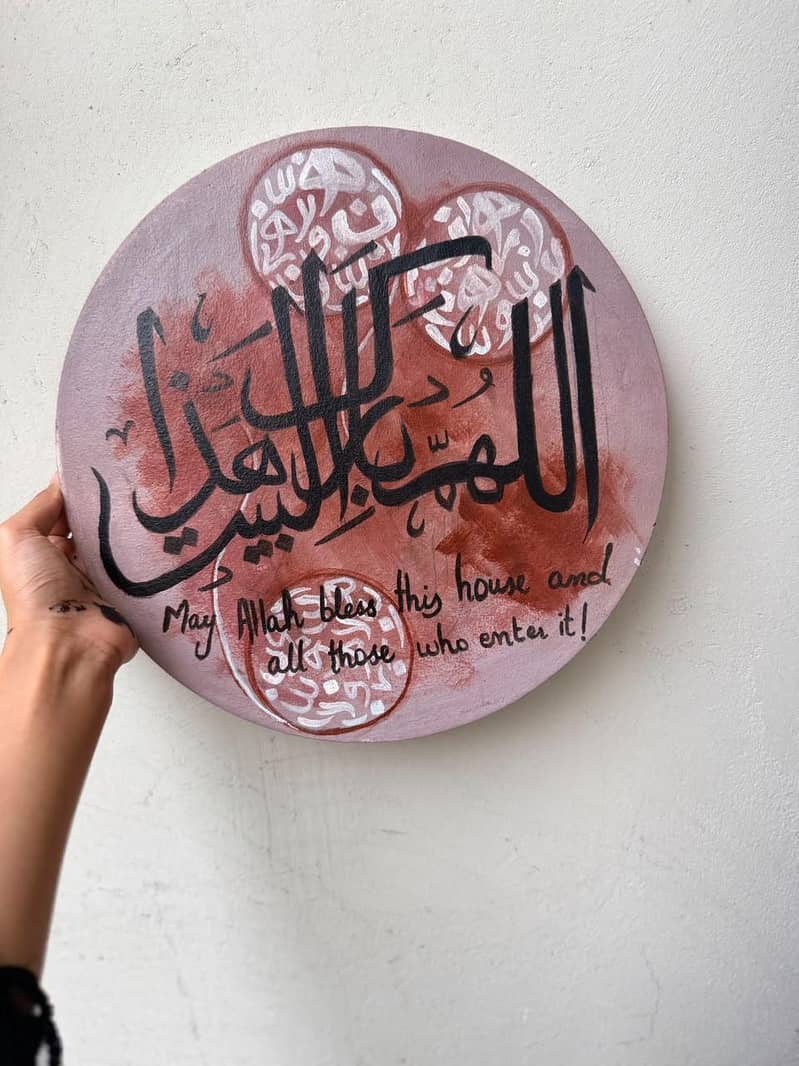 اللهم بارك هذا البيت
May Allah bless this house and
all those who enter it!